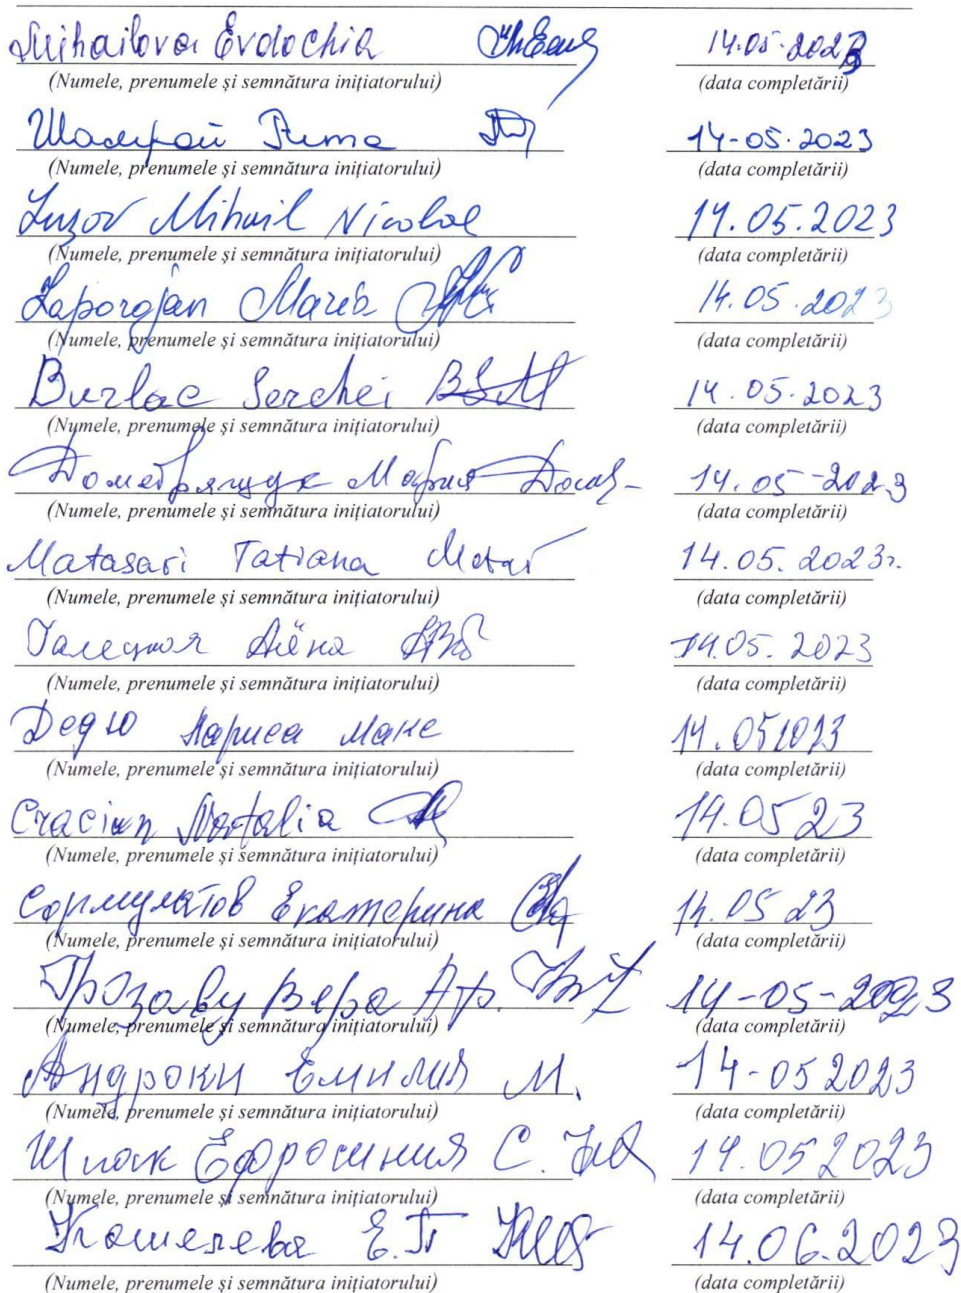 Mihailova Evdochia 14.05.2023
(Numele, prenumele și semnătura inițiatorului) (data completării)
Рита 14-05.2023
(Numele, prenumele și semnătura inițiatorului) (data completării)
Luzov Mihail Nicolae 14.05.2023
(Numele, prenumele și semnătura inițiatorului) (data completării)
Zaporojan Maria 14.05.2023
(Numele, prenumele și semnătura inițiatorului) (data completării)
Burlac Serchei 14.05.2023
(Numele, prenumele și semnătura inițiatorului) (data completării)
Мария 14.05-2023
(Numele, prenumele și semnătura inițiatorului) (data completării)
Matasari Tatiana 14.05.2023г.
(Numele, prenumele și semnătura inițiatorului) (data completării)
Алёна 14.05.2023
(Numele, prenumele și semnătura inițiatorului) (data completării)
Дедю Лариса Макс 14.052023
(Numele, prenumele și semnătura inițiatorului) (data completării)
Craciun Natalia 14.05 23
(Numele, prenumele și semnătura inițiatorului) (data completării)
Екатерина 14.05 23
(Numele, prenumele și semnătura inițiatorului) (data completării)
Грозаву Вера Аф. 14-05-2023
(Numele, prenumele și semnătura inițiatorului) (data completării)
Андроки Емилия М. 14-05 2023
(Numele, prenumele și semnătura inițiatorului) (data completării)
Шпак Ефросиния С. 14.05 2023
(Numele, prenumele și semnătura inițiatorului) (data completării)
Кошелева Е.П 14.06.2023
(Numele, prenumele și semnătura inițiatorului) (data completării)